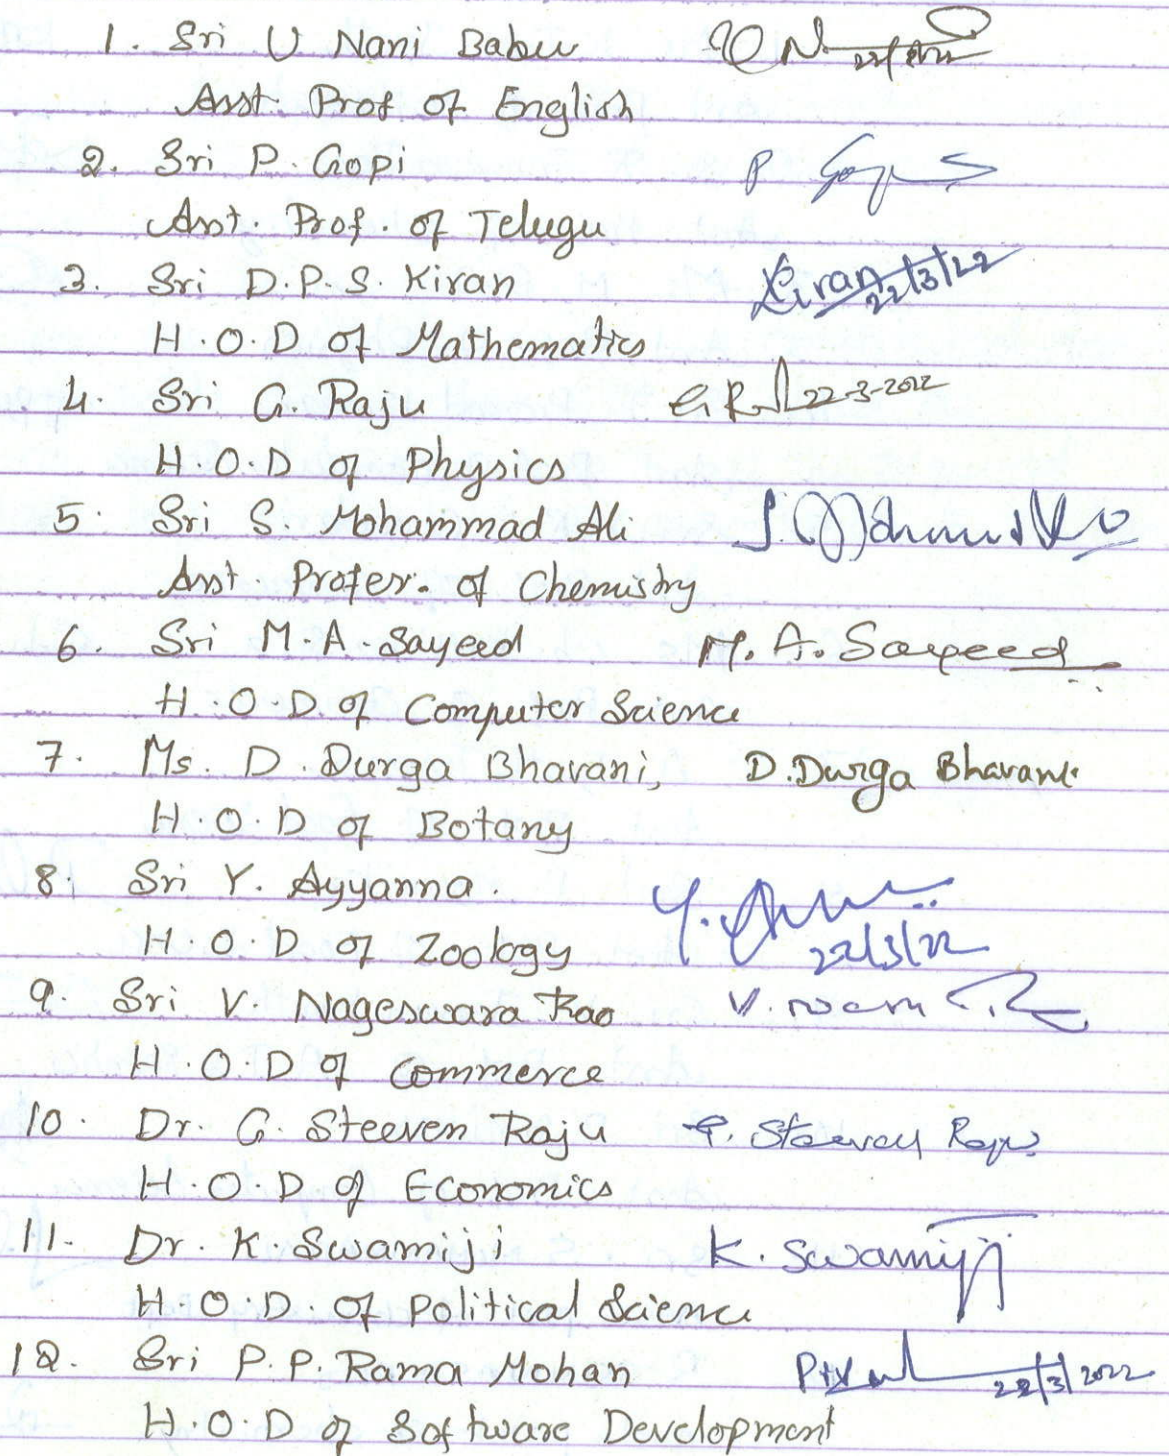 1. Sri U Nani Babu 22/3/2022
Asst. Prof of English
2. Sri P. Gopi P Gopi
Asst. Prof. of Telugu
3. Sri D.P.S. Kiran Kiran 22/3/22
H.O.D of Mathematics
4. Sri G. Raju 22-3-2022
H.O.D of Physics
5. Sri S. Mohammad Ali
Asst. Profer. of Chemistry
6. Sri M.A. Sayeed M. A. Sayeed
H.O.D. of Computer Science
7. Ms. D. Durga Bhavani, D. Durga Bhavani
H.O.D of Botany
8. Sri Y. Ayyanna.
H.O.D of Zoology 22/3/22
9. Sri V. Nageswara Rao
H.O.D of Commerce
10. Dr. G. Steeven Raju G. Steeven Raju
H.O.D of Economics
11. Dr. K. Swamiji K. Swamiji
H.O.D. of Political Science
12. Sri P.P. Rama Mohan 22/3/2022
H.O.D of Software Development